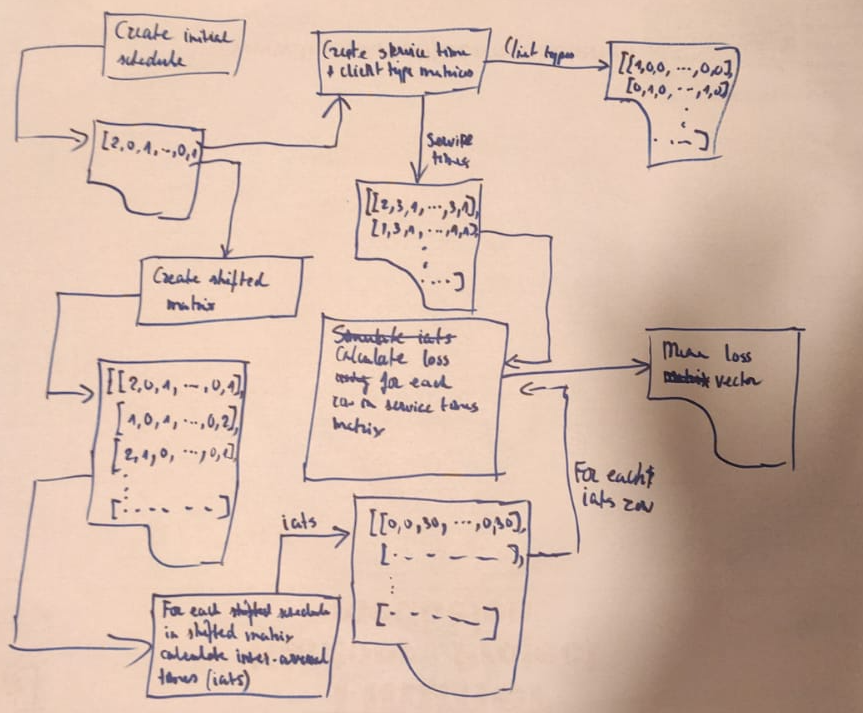 Create initial
schedule
Create service time
+ client type matrices
Client types
[[1,0,0, ..., 0,0],
[0,1,0, ..., 1,0]
:
. ... ]
[2,0,1, ..., 0,1]
Service
times
[[2,3,1, ..., 3,1],
[1,3,1, ..., 1,1],
:
....]
Create shifted
matrix
[[2,0,1, ..., 0,1],
[1,0,1, ..., 0,2],
[2,1,0, ..., 0,1],
:
[. - - - - ]
Simulate iats
Calculate loss
using for each
row in service times
matrix
Mean loss
matrix vector
For each
iats row
iats
[[0,0,30, ..., 0,30],
[. - - - - - ],
:
[- - - - - ]
For each shifted schedule
in shifted matrix
calculate inter-arrival
times (iats)